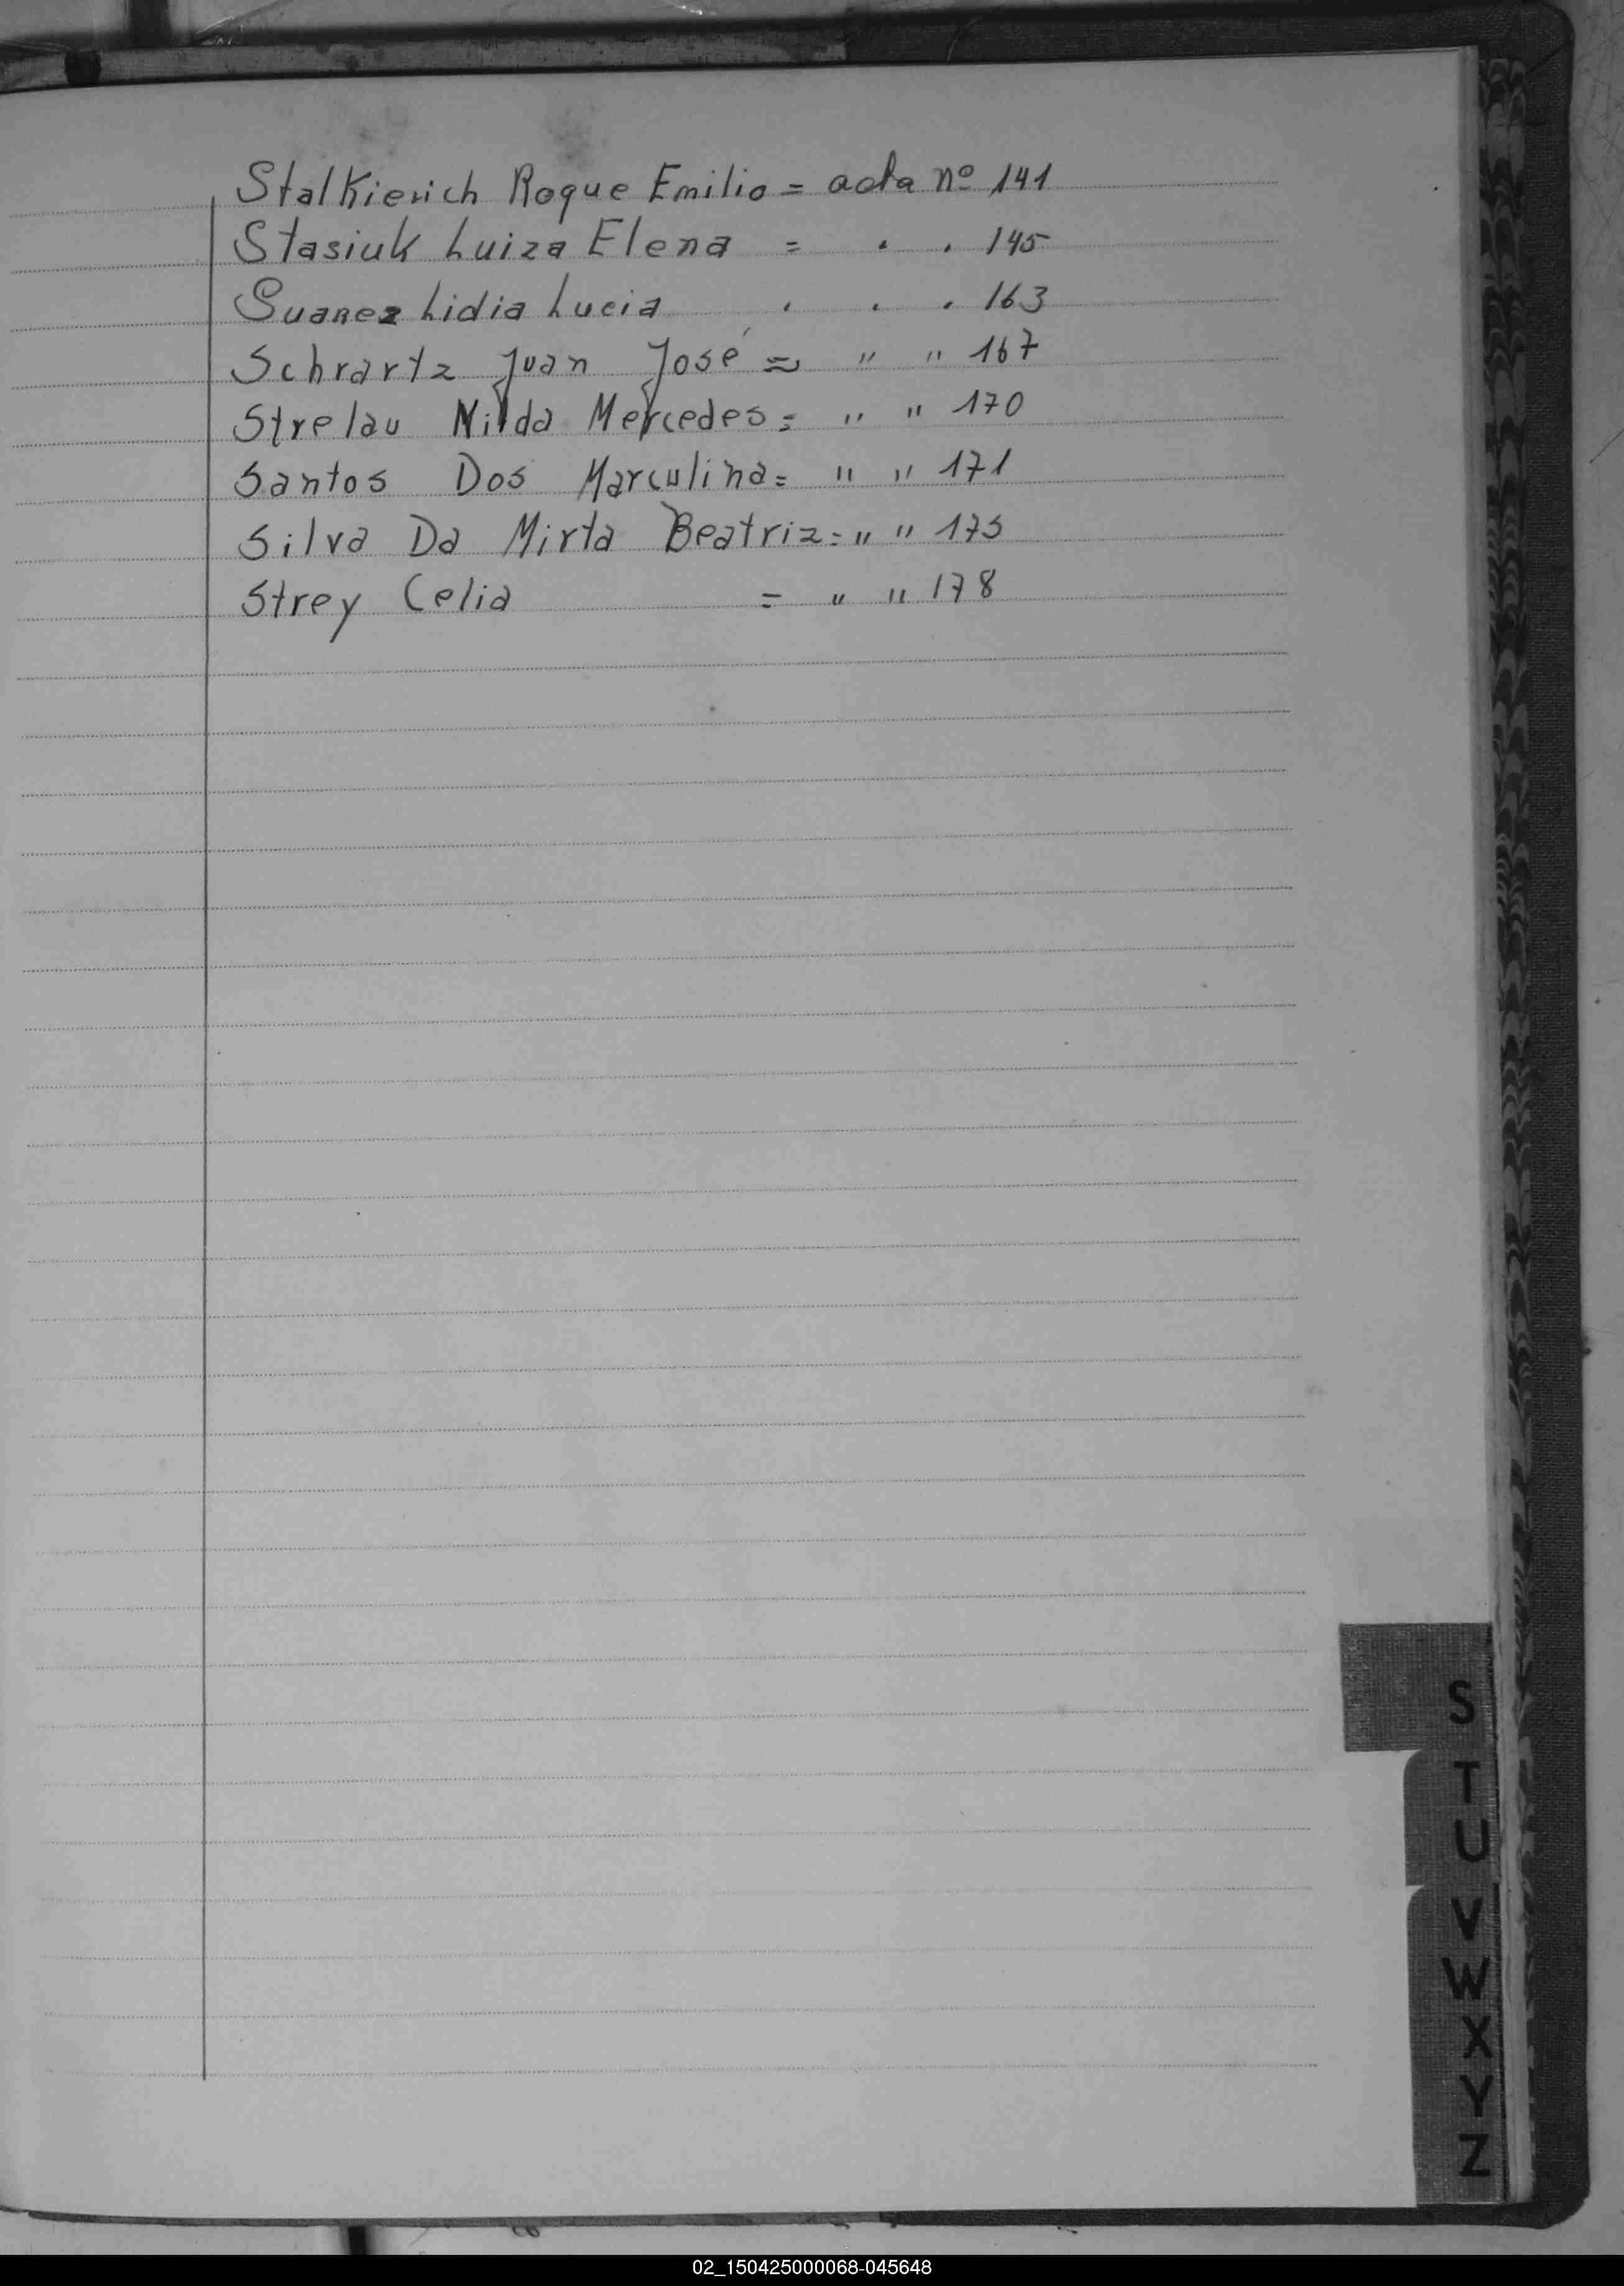 Stalkievich Roque Emilio = acta nº 141
Stasiuk Luiza Elena = . . 145
Suarez Lidia Lucia . . . 163
Schrartz Juan José = " " 167
Strelau Nilda Mercedes = " " 170
Santos Dos Marculina = " " 171
Silva Da Mirta Beatriz = " " 175
Strey Celia = " " 178
S
T
U
V
W
X
Y
Z
02_150425000068-045648